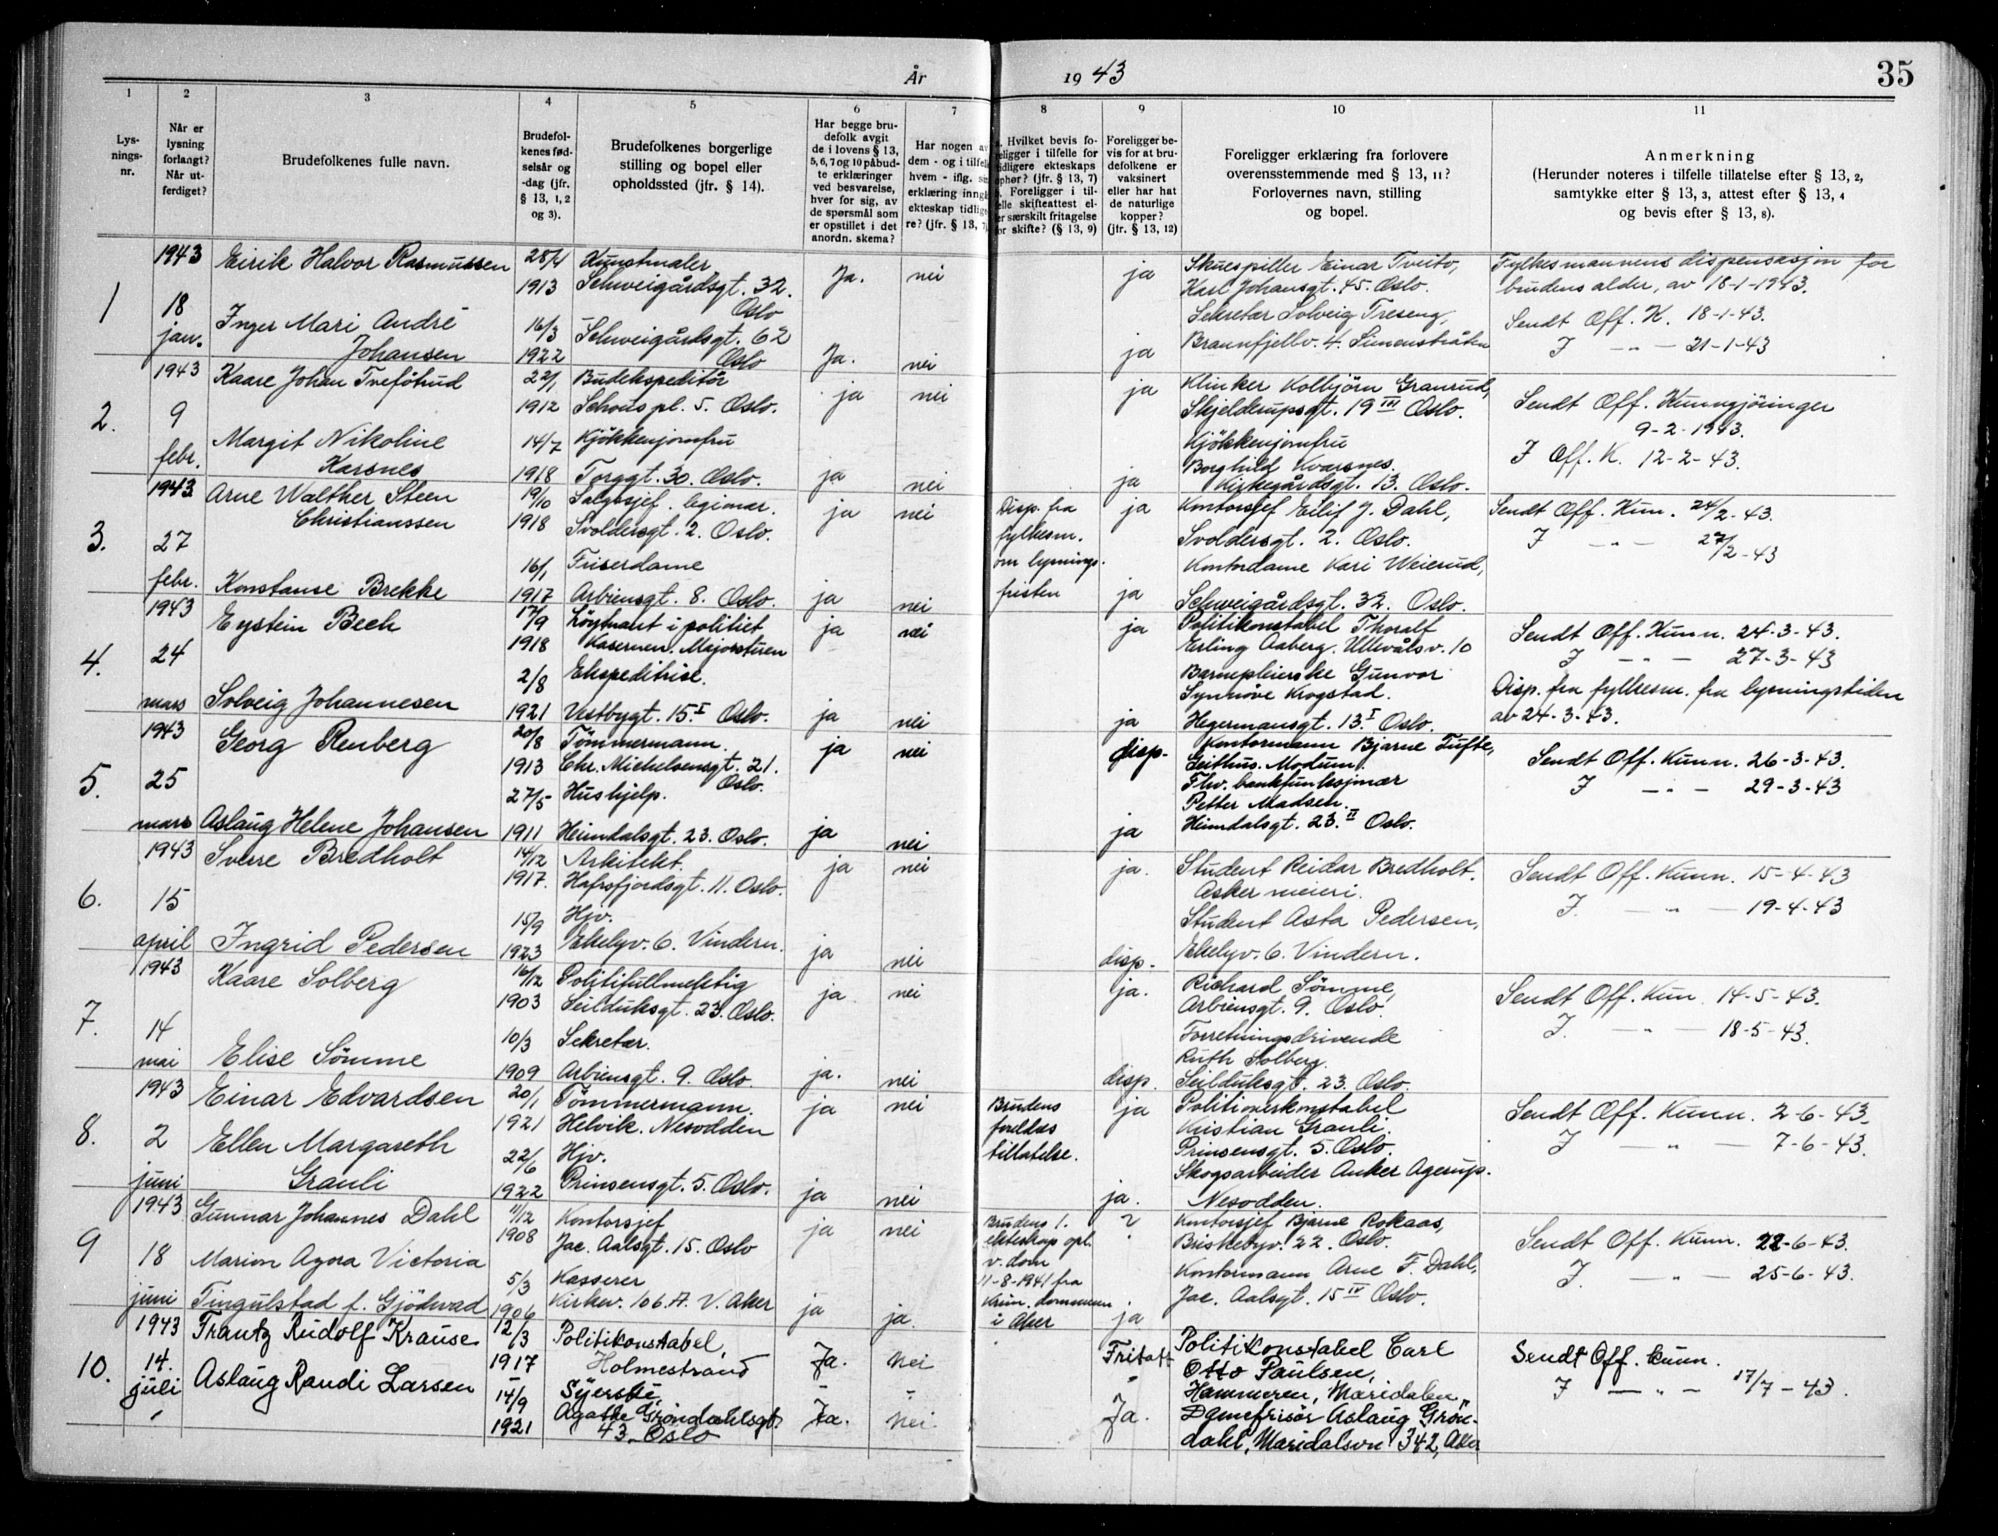 År 1943
35
1
2
3
4
5
6
7
8
9
10
11
Lys-
nings-
nr.
Når er
lysning
forlangt?
Når ut-
ferdiget?
Brudefolkenes fulle navn.
Brudefol-
kenes fød-
selsår og
-dag (jfr.
§ 13, 1, 2
og 3).
Brudefolkenes borgerlige
stilling og bopel eller
opholdssted (jfr. § 14).
Har begge bru-
defolk avgit
de i lovens § 13,
5, 6, 7 og 10 påbud-
te erklæringer
ved besvarelse,
hver for sig, av
de spørsmål som
er opstillet i det
anordn. skema?
Har nogen av
dem - og i tilfelle
hvem - iflg.
erklæring inng
ekteskap tidlig
re? (jfr. § 13,
Hvilket bevis fo-
religger i tilfelle for
tidligere ekteskaps
ophør? (jfr. § 13, 7)
Foreligger i til-
felle skifteattest el-
ler særskilt fritagelse
for skifte? (§ 13, 9)
Foreligger be-
vis for at bru-
defolkene er
vaksinert
eller har hat
de naturlige
kopper?
(jfr. § 13, 12)
Foreligger erklæring fra forlovere
overensstemmende med § 13, 11?
Forlovernes navn, stilling
og bopel.
Anmerkning
(Herunder noteres i tilfelle tillatelse efter § 13, 2,
samtykke efter § 13, 3, attest efter § 13, 4
og bevis efter § 13, 8).
1
1943
18
jan.
Eirik Halvor Rasmussen
28/4
1913
Kunstmaler
Schweigårdsgt. 32.
Oslo
Ja.
nei
ja
Skuespiller Einar Tveito,
Karl Johansgt. 45. Oslo.
Fylkesmannens dispensasjon for
brudens alder, av 18-1-1943.
Inger Mari André
Johansen
16/3
1922
Schweigårdsgt. 62
Oslo
Ja.
nei
ja
Sekretær Solveig Treseng,
Braunfjellv. 4. Simenstråten
Sendt Off. K. 18-1-43.
I — „ — 21-1-43
2.
1943
9
febr.
Kaare Johan Tveföhud
22/1
1912
Budekspeditör
Schous pl. 5. Oslo.
ja
nei
ja
Klinker Kolbjörn Granrud,
Skjelderupsgt. 19 III Oslo.
Sendt Off. Kunngjöringer
9-2-1943.
Margit Nikoline
Karsnes
14/7
1918
Kjökkenjomfru
Torggt. 30. Oslo.
ja
nei
ja
Kjökkenjomfru
Borghild Kvarsnes.
Kirkegårdsgt. 13. Oslo.
I Off. K. 12-2-43.
3.
1943
27
febr.
Arne Walther Steen
Christianssen
19/10
1918
Salgssjef. legionær.
Svoldersgt. 2. Oslo.
ja
nei
Disp. fra
fylkesm.
om lysnings-
fristen
ja
Kontorsjef Eilif J. Dahl,
Svoldersgt. 2. Oslo.
Sendt Off. Kun. 24/2-43.
I — „ — 27/2-43
Konstanse Brekke
16/1
1917
Friserdame
Arbiensgt. 8. Oslo.
ja
nei
ja
Kontordame Kari Weierud,
Schweigårdsgt. 32. Oslo.
4.
1943
24
mars
Eystein Bech
17/9
1918
Löytnant i politiet
Kasernen. Majorstuen
ja
nei
ja
Politikonstabel Thoralf
Erling Aaberg. Ullevålsv. 10
Sendt Off. Kunn. 24-3-43.
I — „ — 27-3-43
Solveig Johannesen
2/8
1921
Ekspeditrise.
Vestbygt. 15. I Oslo.
ja
nei
ja
Barnepleierske Gunvor
Synnöve Krogstad.
Hegermansgt. 13. I Oslo.
Disp. fra fylkesm. fra lysningstiden
av 24-3-43.
5.
1943
25
mars
Georg Renberg
20/8
1913
Tömmermann.
Chr. Michelsensgt. 21.
Oslo.
ja
nei
disp.
Kontormann Bjarne Tufte,
Geithus. Modum.
Sendt Off. Kunn. 26-3-43.
I — „ — 29-3-43
Aslaug Helene Johansen
27/5
1911
Hushjelp.
Heimdalsgt. 23. Oslo.
ja
nei
ja
Fhv. bankfunksjonær
Petter Madsen.
Heimdalsgt. 23. II Oslo.
6.
1943
15
april
Sverre Bredholt
14/12
1917.
Arkitekt.
Hafrsfjordsgt. 11. Oslo.
ja
nei
ja.
Student Reidar Bredholt.
Asker meieri.
Sendt Off. Kunn. 15-4-43
I. — „ — 19-4-43
Ingrid Pedersen
15/9
1923
Hjv.
Ekelyv. 6. Vindern.
ja
nei
disp.
Student Asta Pedersen,
Ekelyv. 6. Vindern.
7.
1943
14
mai
Kaare Solberg
16/12
1903
Politifullmektig
Seilduksgt. 23. Oslo.
ja
nei
ja.
Richard Sömme,
Arbiensgt. 9. Oslo.
Sendt Off. Kun. 14-5-43.
I. — „ — 18-5-43.
Elise Sömme
10/3
1909
Sekretær.
Arbiensgt. 9. Oslo.
ja.
nei
disp.
Forretningsdrivende
Ruth Solberg.
Seilduksgt. 23. Oslo.
8.
1943
2
juni
Einar Edvardsen
20/1
1921
Tömmermann.
Helvik. Nesodden
ja
nei
Brudens
foreldres
tillatelse.
ja
Politioverkonstabel
Kristian Grauli.
Prinsensgt. 5. Oslo.
Sendt Off. Kunn. 2-6-43.
I — „ — 7-6-43.
Ellen Margareth
Grauli
22/6
1922
Hjv.
Prinsensgt. 5. Oslo.
ja
nei
ja.
Skogsarbeider Anker Agerup.
Nesodden.
9
1943
18
juni
Gunnar Johannes Dahl
11/12
1908
Kontorsjef
Jac. Aalsgt. 15. Oslo
ja
nei
Brudens 1.
ekteskap opl.
v. dom
11-8-1941 fra
i Aker
?
Kontorsjef Bjarne Rokaas,
Briskebyv. 22. Oslo.
Sendt Off. Kunn. 22-6-43.
I. — „ — 25-6-43.
Marion Agora Victoria
Tingulstad f. Gjödwad
5/3
1906
Kasserer
Kirkev. 106 A. V. Aker
ja
ja.
ja
Kontormann Arne F. Dahl,
Jac. Aalsgt. 15 IV Oslo.
10.
1943
14.
juli
Frantz Rudolf Krause
12/3
1917
Politikonstabel,
Holmestrand
Ja.
Nei
Fritatt
Politikonstabel Carl
Otto Paulsen,
Hammeren, Maridalen,
Sendt Off. kunn.
I — „ — 17/7-43.
Aslaug Randi Larsen
14/9
1921
Syerske,
Agathe Gröndahlsgt.
43, Oslo
Ja.
Nei.
Ja.
Damefrisör Aslaug Grön-
dahl, Maridalsvn 342, Aker